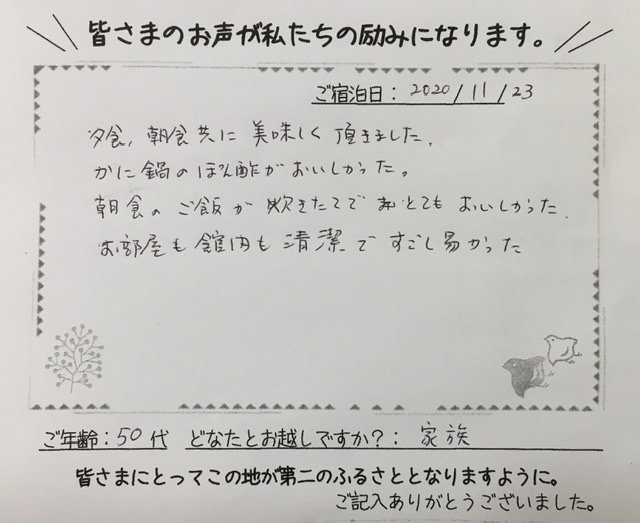 皆さまのお声が私たちの励みになります。
ご宿泊日：2020/11/23
夕食，朝食共に美味しく頂きました．
かに鍋のぽん酢がおいしかった。
朝食のご飯が炊きたてでとてもおいしかった．
お部屋も館内も清潔ですごし易かった
ご年齢：50代 どなたとお越しですか？： 家族
皆さまにとってこの地が第二のふるさととなりますように。
ご記入ありがとうございました。